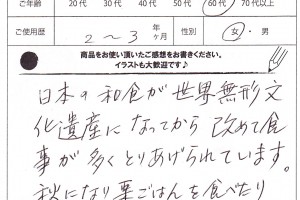 ご年齢 20代 30代 40代 50代 60代 70代以上
ご使用歴 2～3 年 ヶ月 性別 女・男
商品をお使い頂いたご感想をお書きください。
イラストも大歓迎です♪
日本の和食が世界無形文
化遺産になってから改めて食
事が多くとりあげられています。
秋になり栗ごはんを食べたり